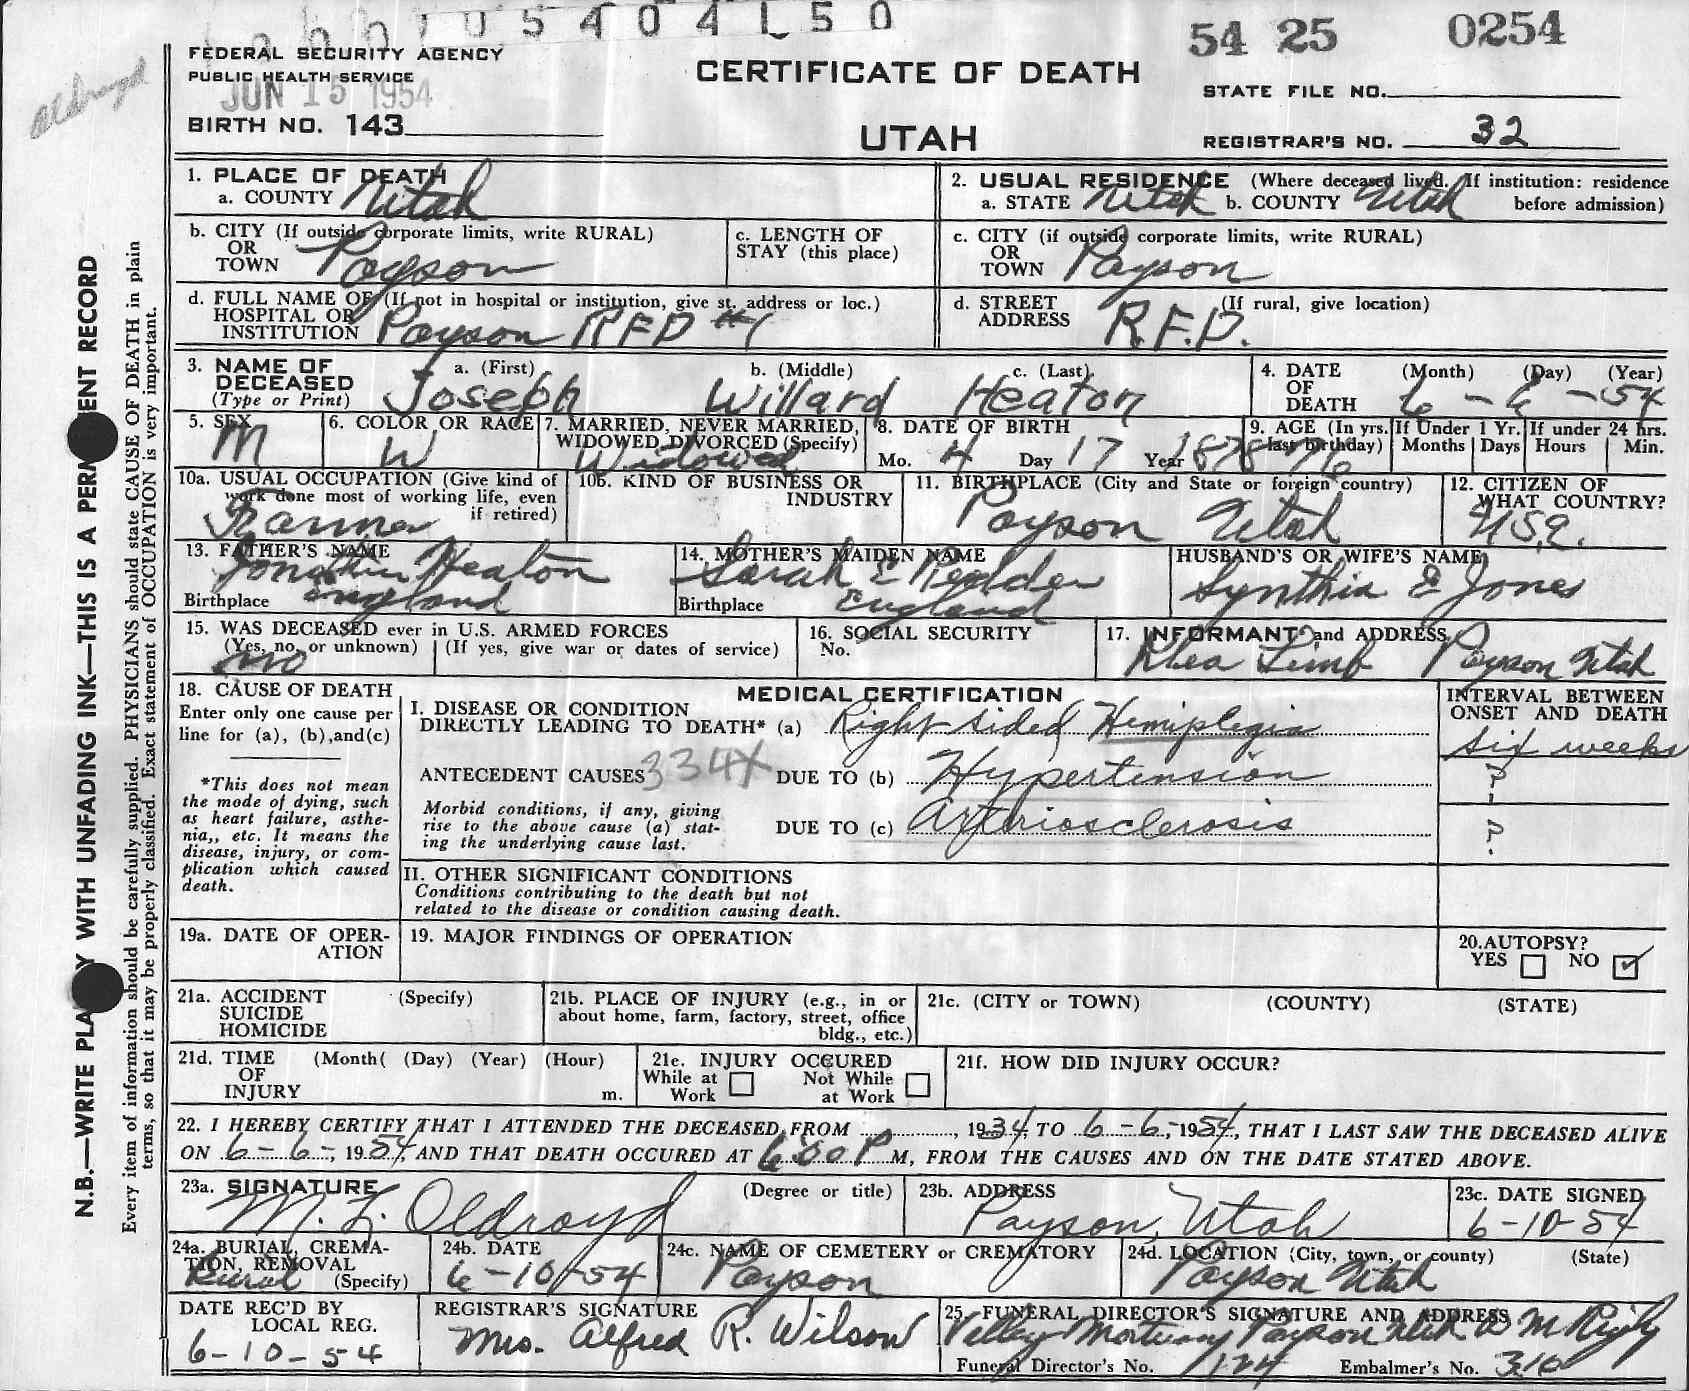 0 5 4 0 4 1 5 0
54 25 0254
FEDERAL SECURITY AGENCY
PUBLIC HEALTH SERVICE
JUN 15 1954
BIRTH NO. 143
CERTIFICATE OF DEATH
UTAH
STATE FILE NO.
REGISTRAR'S NO. 32
Oldroyd
N.B.—WRITE PLA Y WITH UNFADING INK—THIS IS A PERM ENT RECORD
Every item of information should be carefully supplied. PHYSICIANS should state CAUSE OF DEATH in plain
terms, so that it may be properly classified. Exact statement of OCCUPATION is very important.
1. PLACE OF DEATH
a. COUNTY Utah
2. USUAL RESIDENCE (Where deceased lived. If institution: residence
a. STATE Utah b. COUNTY Utah before admission)
b. CITY (If outside corporate limits, write RURAL)
OR
TOWN Payson
c. LENGTH OF
STAY (this place)
c. CITY (if outside corporate limits, write RURAL)
OR
TOWN Payson
d. FULL NAME OF (If not in hospital or institution, give st. address or loc.)
HOSPITAL OR
INSTITUTION Payson RFD #1
d. STREET (If rural, give location)
ADDRESS R.F.D.
3. NAME OF a. (First) b. (Middle) c. (Last)
DECEASED
(Type or Print) Joseph Willard Heaton
4. DATE (Month) (Day) (Year)
OF
DEATH 6 - 6 - 54
5. SEX
M
6. COLOR OR RACE
W
7. MARRIED, NEVER MARRIED,
WIDOWED, DIVORCED (Specify)
Widowed
8. DATE OF BIRTH
Mo. 4 Day 17 Year 1878
9. AGE (In yrs.
last birthday)
76
If Under 1 Yr.
Months Days
If under 24 hrs.
Hours Min.
10a. USUAL OCCUPATION (Give kind of
work done most of working life, even
if retired)
Farmer
10b. KIND OF BUSINESS OR
INDUSTRY
11. BIRTHPLACE (City and State or foreign country)
Payson Utah
12. CITIZEN OF
WHAT COUNTRY?
U.S.A.
13. FATHER'S NAME
Jonathan Heaton
Birthplace England
14. MOTHER'S MAIDEN NAME
Sarah E Redden
Birthplace England
HUSBAND'S OR WIFE'S NAME
Synthia E Jones
15. WAS DECEASED ever in U.S. ARMED FORCES
(Yes, no, or unknown) (If yes, give war or dates of service)
no
16. SOCIAL SECURITY
No.
17. INFORMANT and ADDRESS
Rhea Limb Payson Utah
18. CAUSE OF DEATH
Enter only one cause per
line for (a), (b),and(c)
*This does not mean
the mode of dying, such
as heart failure, asthe-
nia,, etc. It means the
disease, injury, or com-
plication which caused
death.
MEDICAL CERTIFICATION
I. DISEASE OR CONDITION
DIRECTLY LEADING TO DEATH* (a) Right sided Hemiplegia
ANTECEDENT CAUSES 334X DUE TO (b) Hypertension
Morbid conditions, if any, giving
rise to the above cause (a) stat-
ing the underlying cause last.
DUE TO (c) Arteriosclerosis
INTERVAL BETWEEN
ONSET AND DEATH
six weeks
?
?
II. OTHER SIGNIFICANT CONDITIONS
Conditions contributing to the death but not
related to the disease or condition causing death.
19a. DATE OF OPER-
ATION
19. MAJOR FINDINGS OF OPERATION
20.AUTOPSY?
YES NO ✓
21a. ACCIDENT (Specify)
SUICIDE
HOMICIDE
21b. PLACE OF INJURY (e.g., in or
about home, farm, factory, street, office
bldg., etc.)
21c. (CITY or TOWN) (COUNTY) (STATE)
21d. TIME (Month( (Day) (Year) (Hour)
OF
INJURY m.
21e. INJURY OCCURED
While at Not While
Work at Work
21f. HOW DID INJURY OCCUR?
22. I HEREBY CERTIFY THAT I ATTENDED THE DECEASED FROM , 1934, TO 6 - 6, 1954, THAT I LAST SAW THE DECEASED ALIVE
ON 6 - 6 -, 1954, AND THAT DEATH OCCURED AT 6:00 P M, FROM THE CAUSES AND ON THE DATE STATED ABOVE.
23a. SIGNATURE (Degree or title)
M. L. Oldroyd
23b. ADDRESS
Payson, Utah
23c. DATE SIGNED
6-10-54
24a. BURIAL, CREMA-
TION, REMOVAL
Burial (Specify)
24b. DATE
6-10-54
24c. NAME OF CEMETERY or CREMATORY
Payson
24d. LOCATION (City, town, or county) (State)
Payson Utah
DATE REC'D BY
LOCAL REG.
6-10-54
REGISTRAR'S SIGNATURE
Mrs. Alfred R. Wilson
25. FUNERAL DIRECTOR'S SIGNATURE AND ADDRESS
Valley Mortuary Payson Utah
Funeral Director's No. 124 Embalmer's No. 310